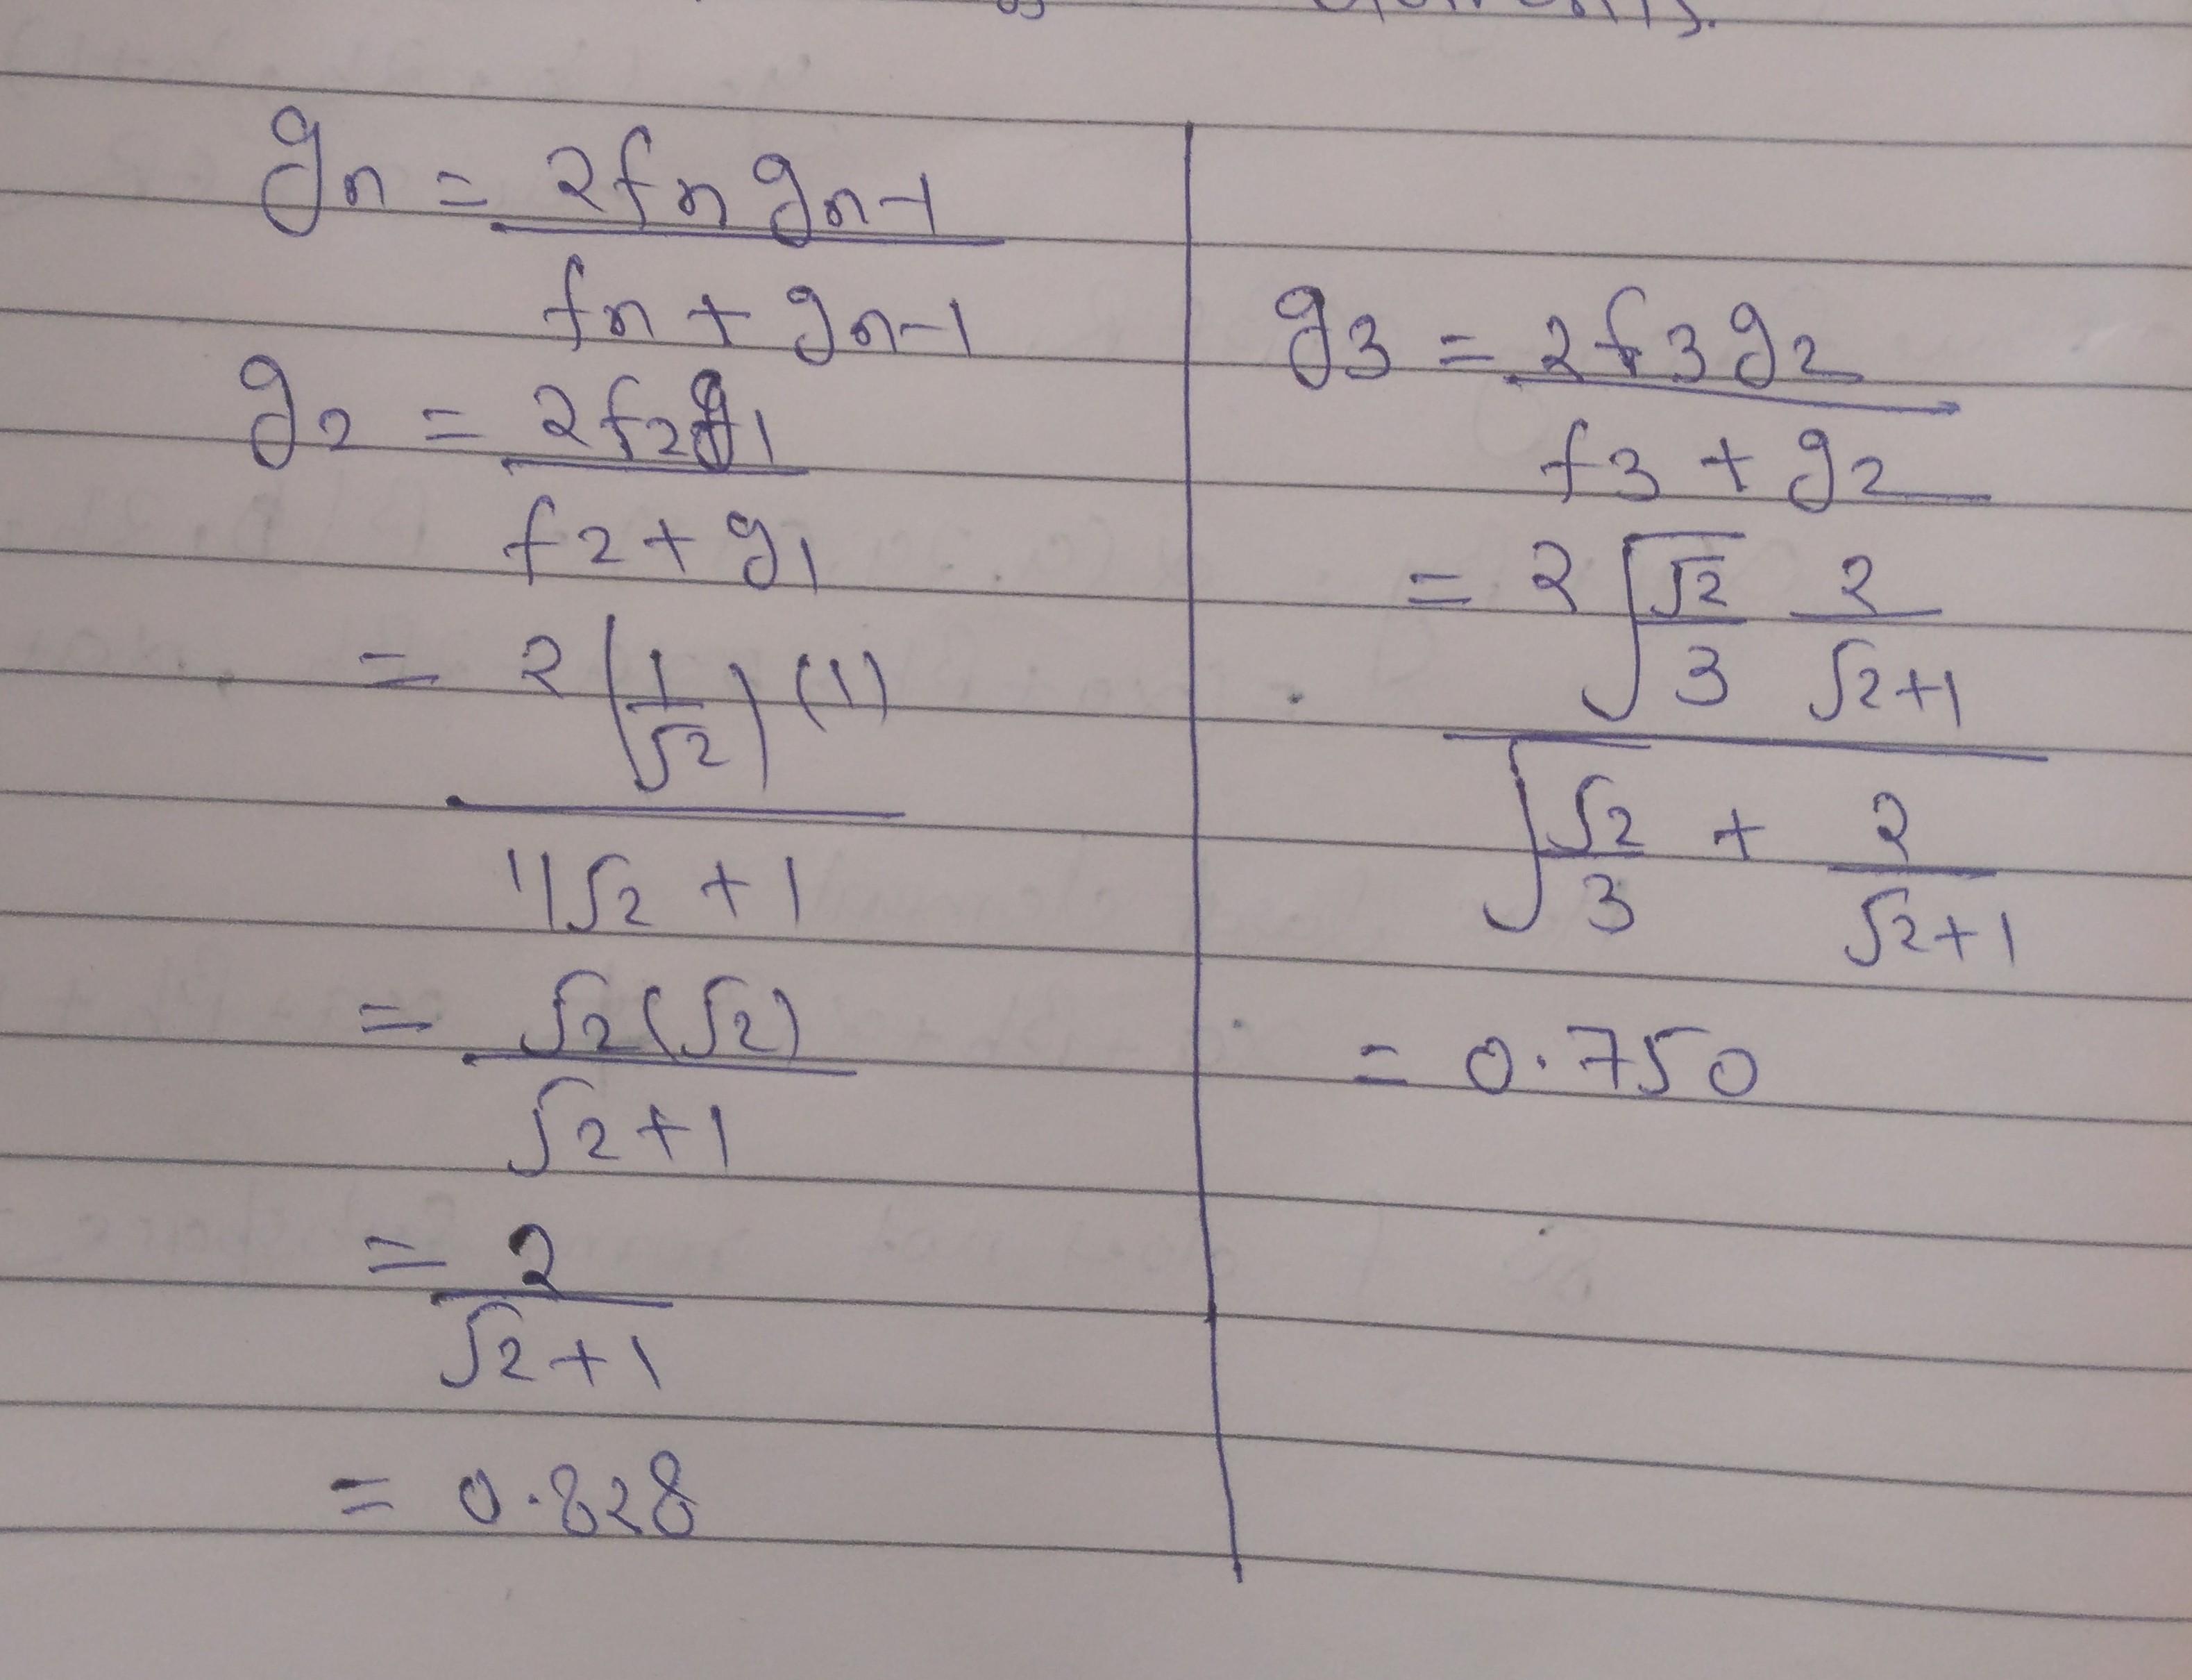 gn = 2fn gn-1
fn + gn-1
g2 = 2f2g1
f2 + g1
= 2 (1/√2) (1)
1/√2 + 1
= √2(√2)
√2+1
= 2
√2+1
= 0.828
g3 = 2f3g2
f3 + g2
= 2 √(√2/3) 2/(√2+1)
√(√2/3) + 2/(√2+1)
= 0.750